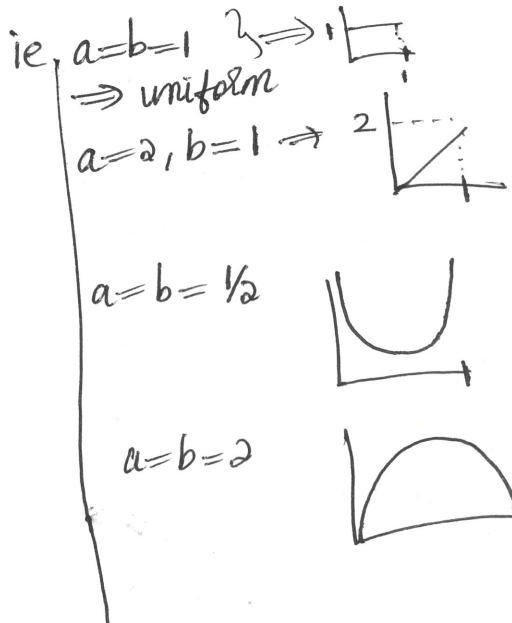 ie, a=b=1 } ⇒ 1
1
⇒ uniform
a=2, b=1 → 2
a=b=1/2
a=b=2